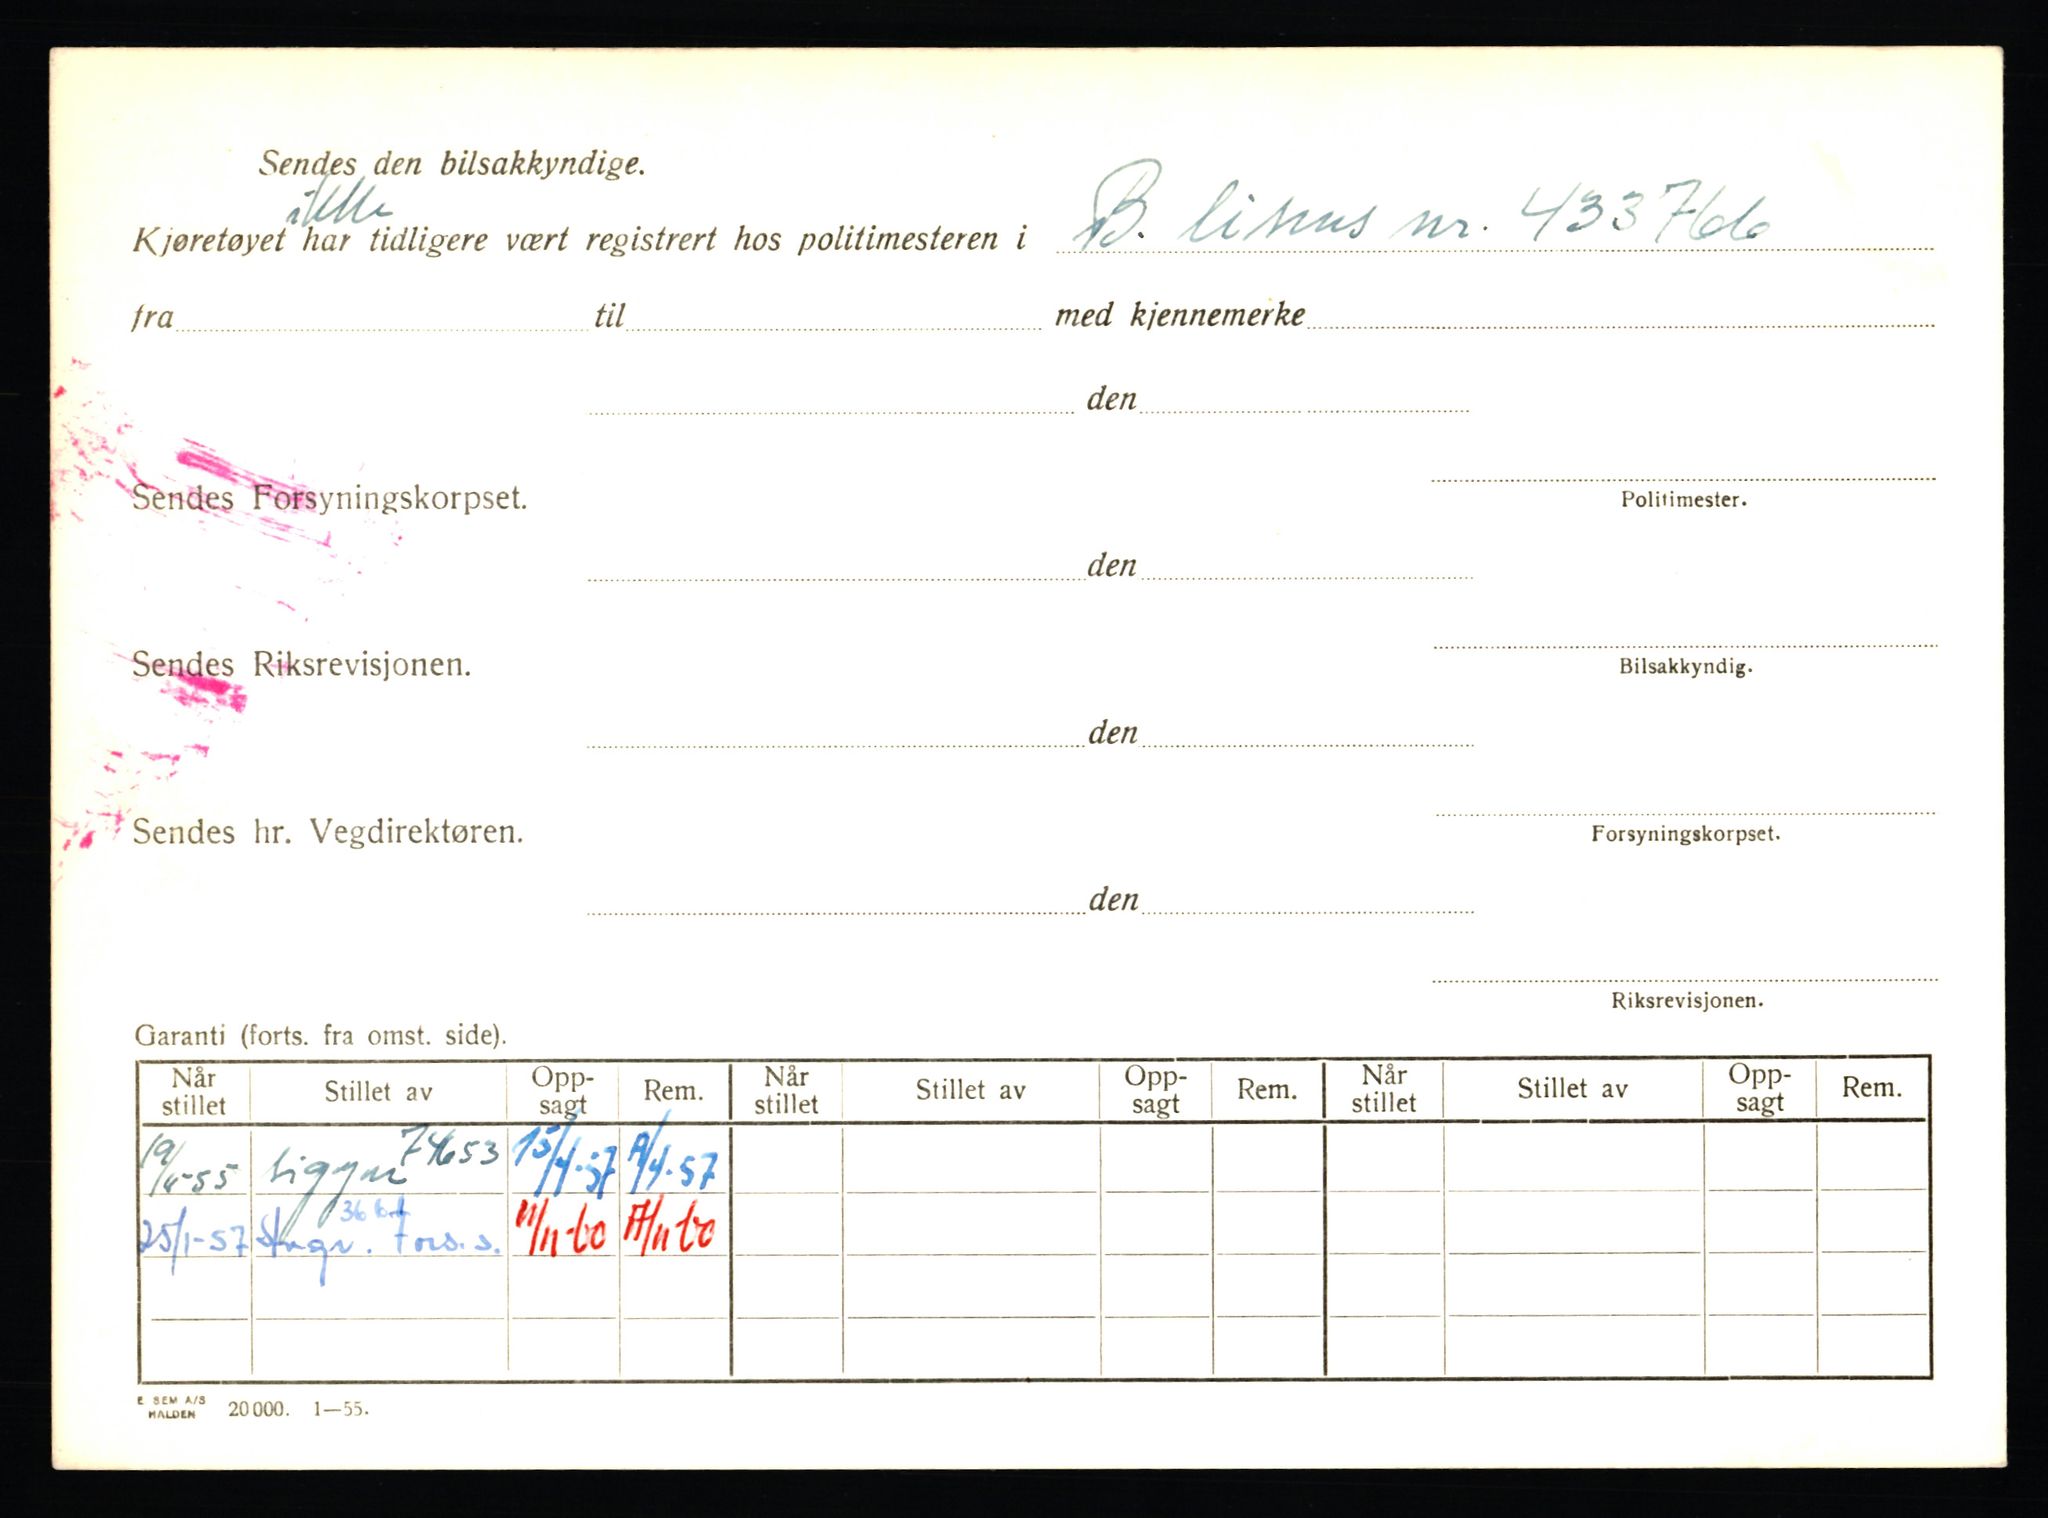 Sendes den bilsakkyndige.
ikke
Kjøretøyet har tidligere vært registrert hos politimesteren i B. lisens nr. 433766
fra til med kjennemerke
den
Sendes Forsyningskorpset.
Politimester.
den
Sendes Riksrevisjonen.
Bilsakkyndig.
den
Sendes hr. Vegdirektøren.
Forsyningskorpset.
den
Riksrevisjonen.
Garanti (forts. fra omst. side).
Når stillet Stillet av Opp-sagt Rem. Når stillet Stillet av Opp-sagt Rem. Når stillet Stillet av Opp-sagt Rem.
74653 15/4-57 /4-57
36
25/1-57 Fors. s. 11/11-60 /11 60
E. SEM A/S
HALDEN 20000. 1—55.